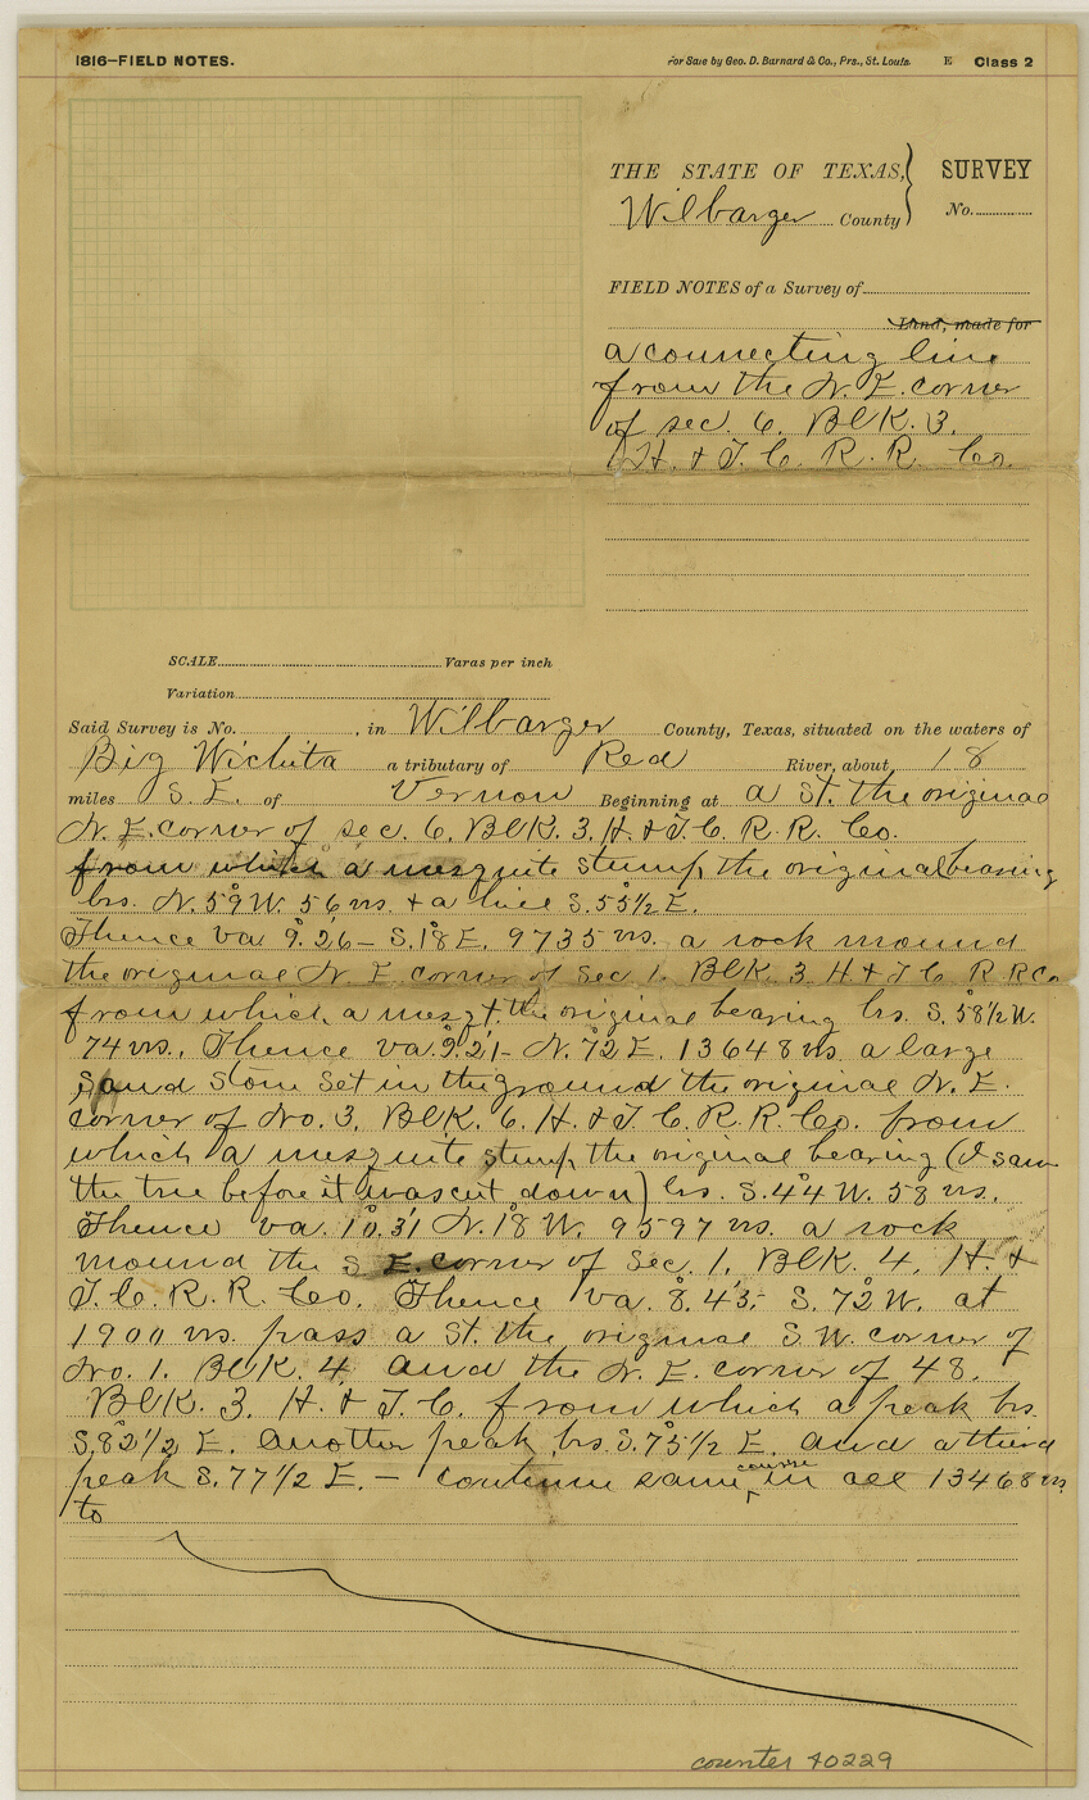 1816—FIELD NOTES.
For Sale by Geo. D. Barnard & Co., Prs., St. Louis. E Class 2
THE STATE OF TEXAS, } SURVEY
Wilbarger County No.
FIELD NOTES of a Survey of
Land, made for
a connecting line
from the N. E. corner
of sec. 6. Blk. 3.
H. & T. C. R. R. Co.
SCALE Varas per inch
Variation
Said Survey is No. , in Wilbarger County, Texas, situated on the waters of
Big Wichita a tributary of Red River, about 18
miles S. E. of Vernon Beginning at a St. the original
N. E. corner of sec. 6. Blk. 3. H. & T. C. R. R. Co.
from which a mezquite stump, the original bearing
brs. N. 59° W. 56 vrs. & a hill S. 55½° E.
Thence va 9°.26– S. 18° E. 9735 vrs. a rock mound
the original N. E. corner of Sec. 1. Blk. 3 H & T C R R Co
from which a mezqt. the original bearing brs. S. 58½° W.
74 vrs. Thence va. 9°.21– N. 72° E. 13648 vrs a large
sand stone set in the ground the original N. E.
corner of No. 3. Blk. 6. H. & T. C. R. R. Co. from
which a mezquite stump, the original bearing (I saw
the tree before it was cut down) brs. S. 44° W. 58 vrs.
Thence va. 10°.31' N. 18° W. 9597 vrs. a rock
mound the S E. corner of Sec. 1. Blk. 4. H. &
T. C. R. R. Co. Thence va. 8°.43' S. 72° W. at
1900 vrs. pass a St. the original S. W. corner of
No. 1. Blk. 4. and the N. E. corner of 48.
Blk. 3. H. & T. C. from which a peak brs.
S. 82½° E. another peak brs. S. 75½° E. and a third
peak S. 77½ E. – continue same course in all 13468 vrs
to
counter 40229